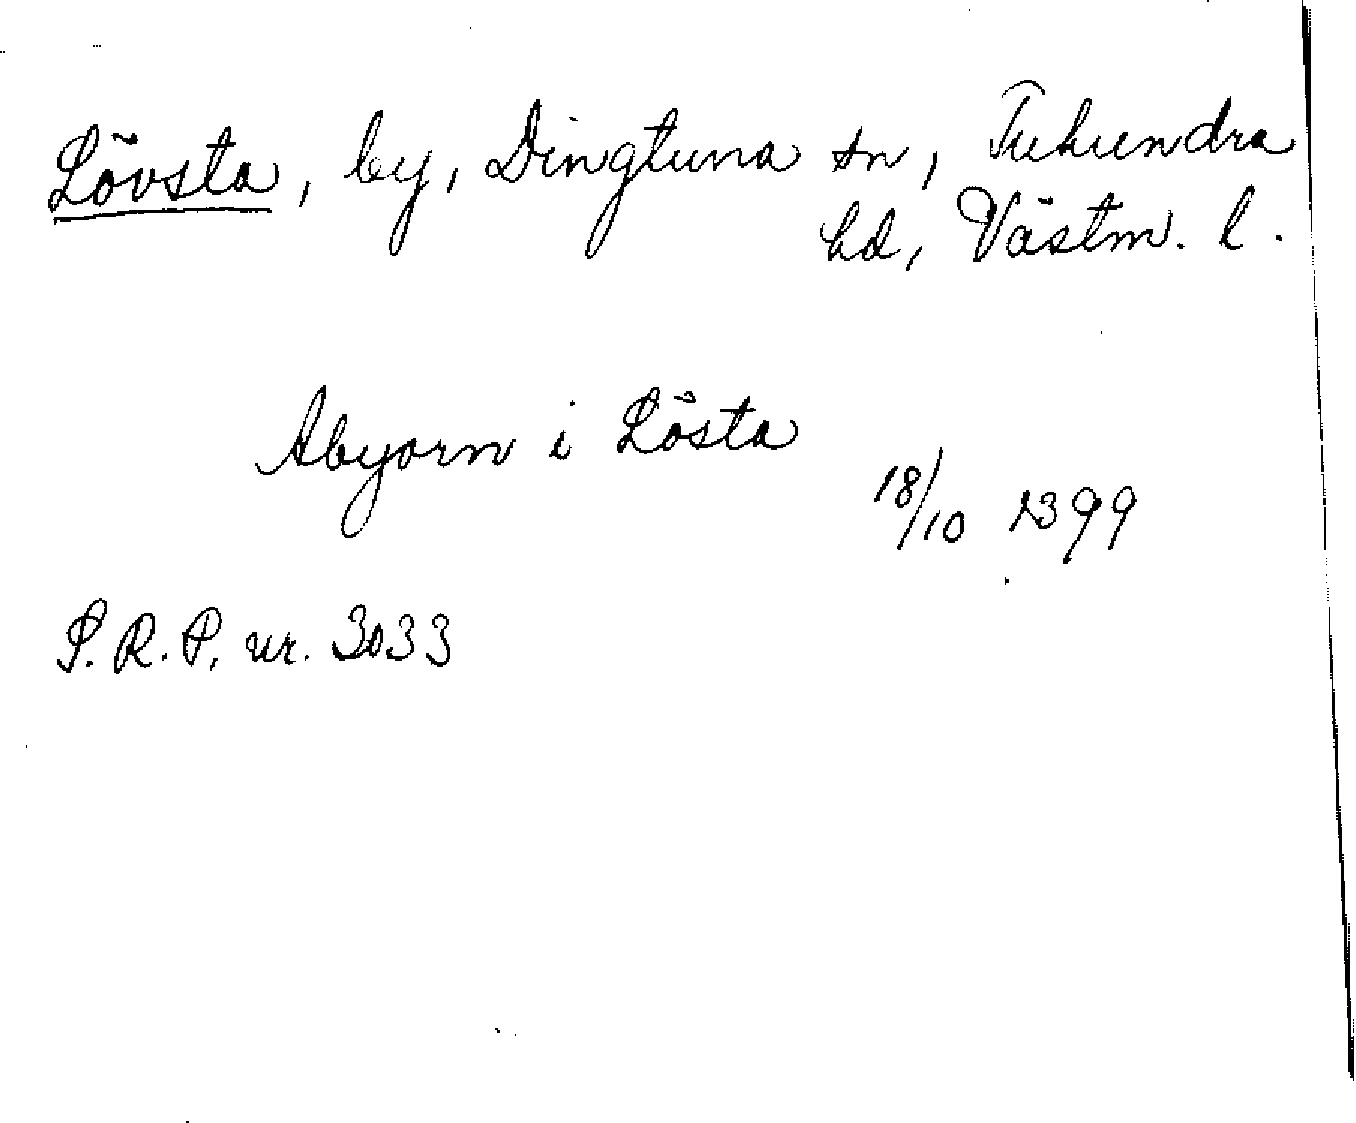 Lövsta, by, Dingtuna sn, Tuhundra
hd, Västm. l.
Abyorn i Lösta
18/10 1399
S.R.P. nr. 3033